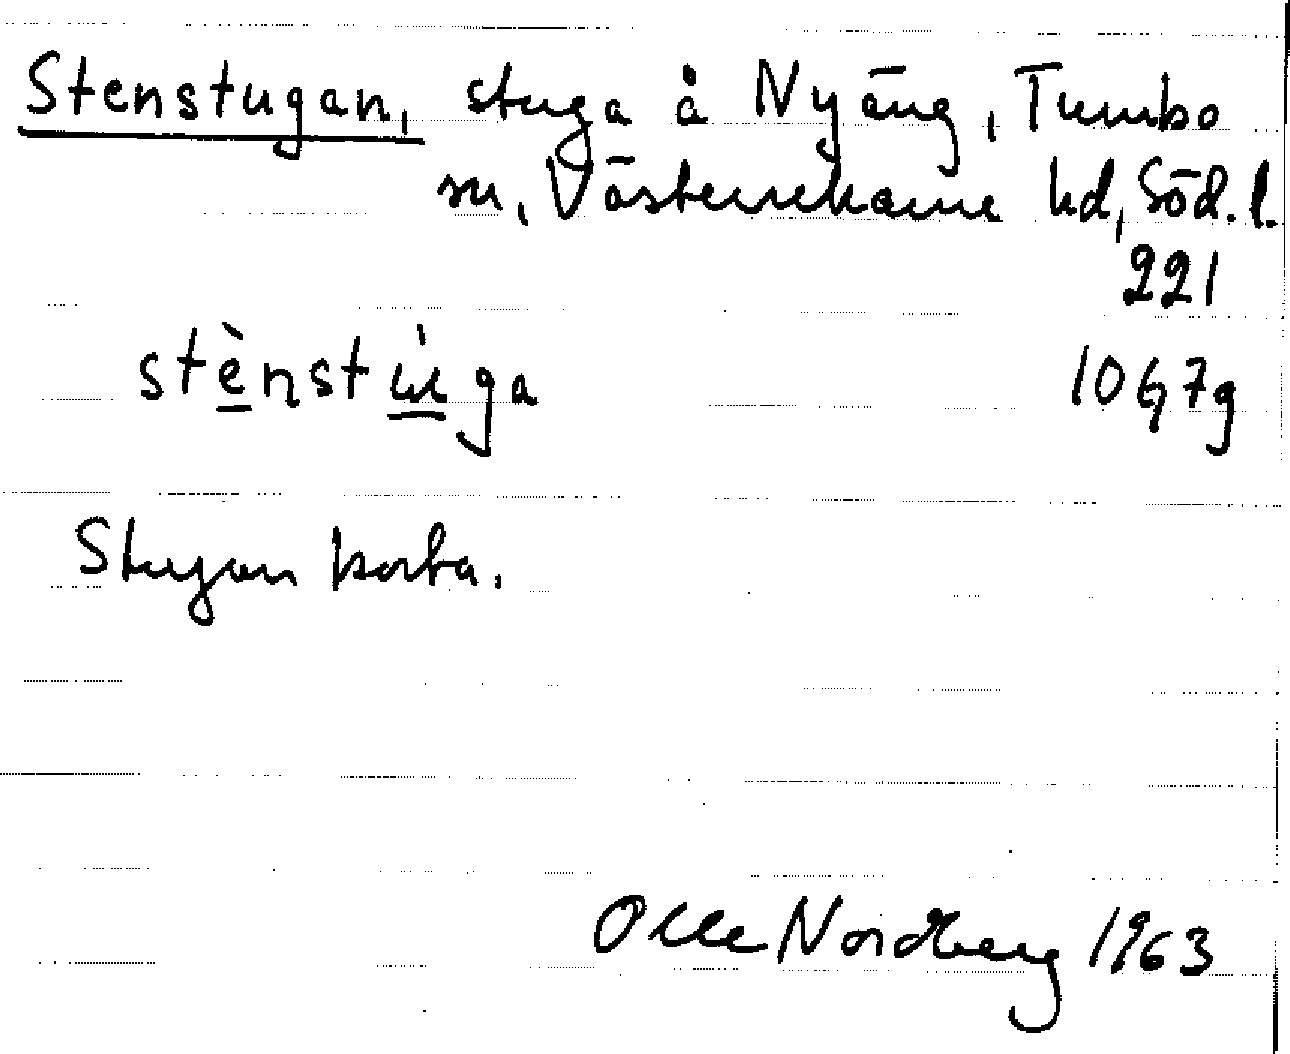 Stenstugan, stuga å Nyäng, Tumbo
sn, Västerrekarne hd, Söd. l.
221
stènstu̇ga 10G7g
Stugan borta.
Olle Nordberg 1963